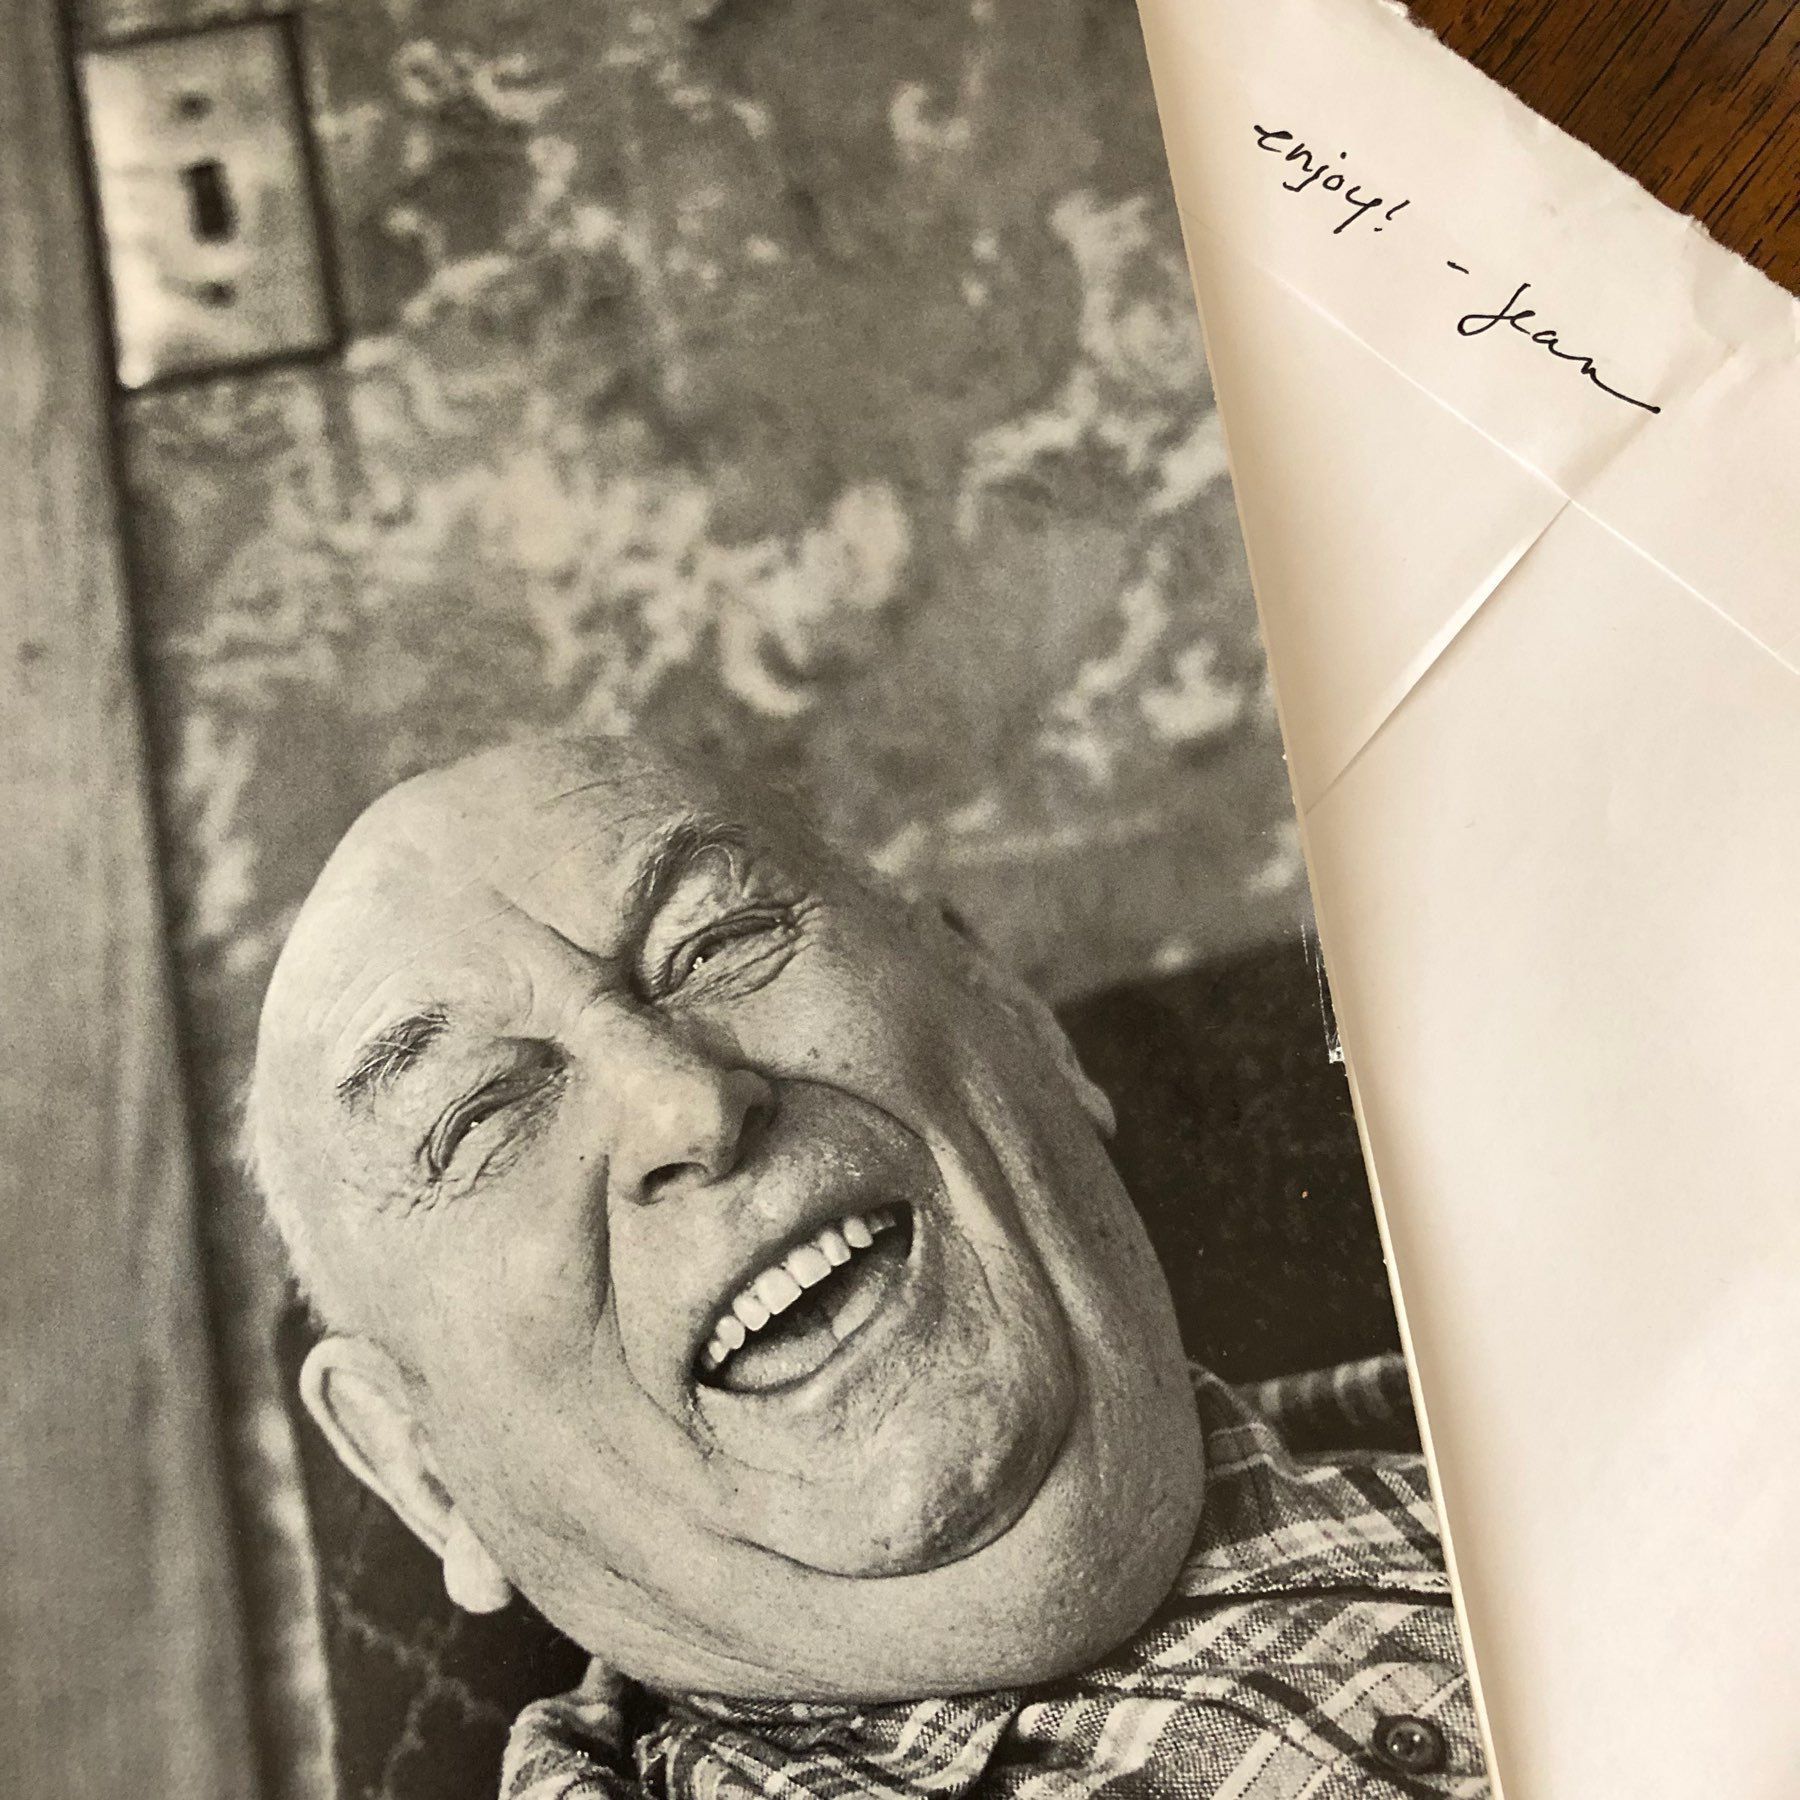 enjoy! - Jean